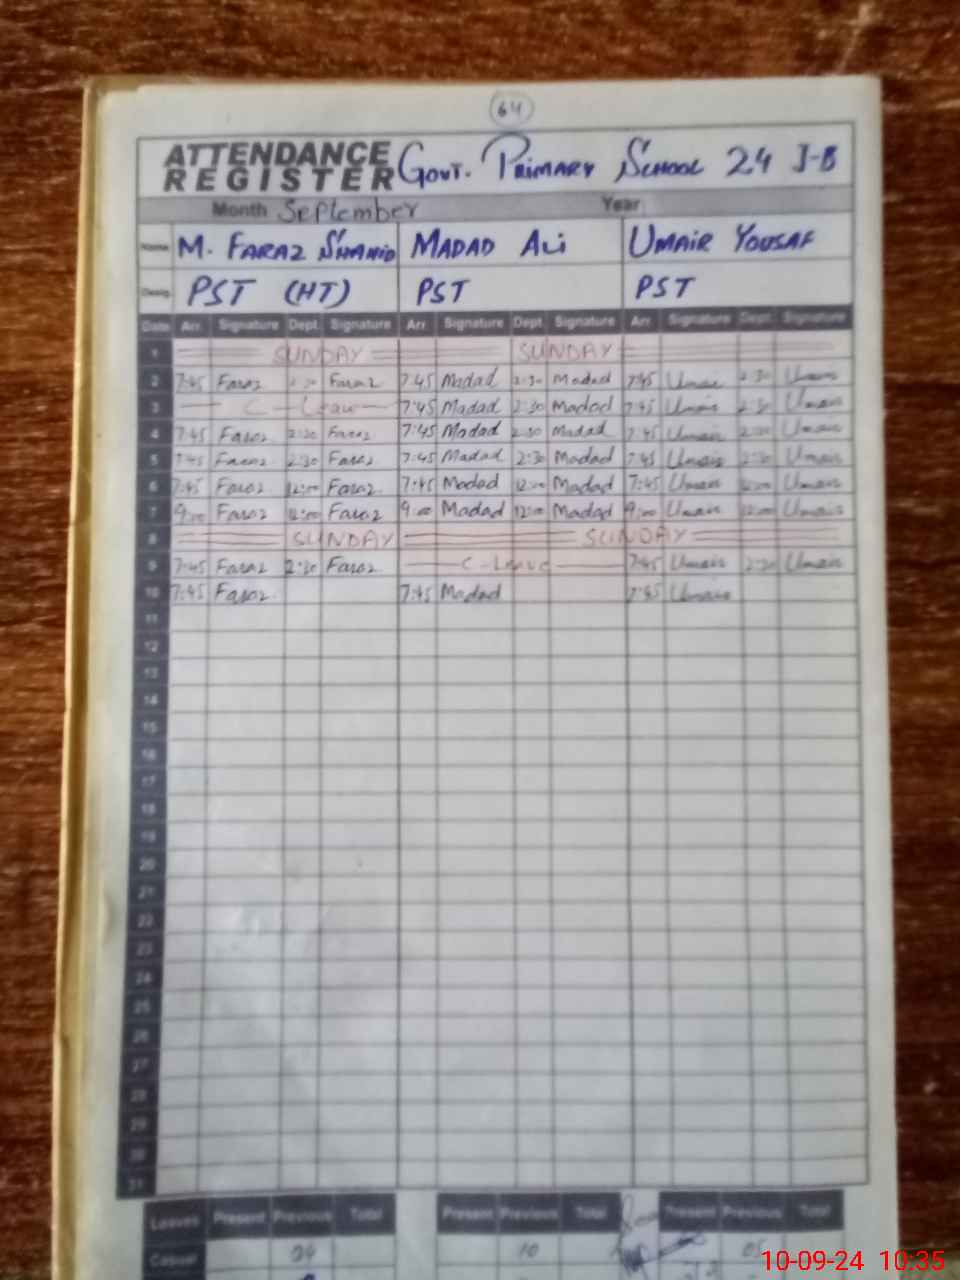 64
ATTENDANCE REGISTER Govt. Primary School 24 J-B
Month September Year
Name M. FARAZ SHAHID MADAD ALi UMAIR YOUSAF
Desig. PST (HT) PST PST
Date Arr. Signature Dept. Signature Arr. Signature Dept. Signature Arr. Signature Dept. Signature
1 SUNDAY SUNDAY
2 7:45 Faraz 2:30 Faraz 7:45 Madad 2:30 Madad 7:45 Umair 2:30 Umair
3 C-Leave 7:45 Madad 2:30 Madad 7:45 Umair 2:30 Umair
4 7:45 Faraz 2:30 Faraz 7:45 Madad 2:30 Madad 7:45 Umair 2:30 Umair
5 7:45 Faraz 2:30 Faraz 7:45 Madad 2:30 Madad 7:45 Umair 2:30 Umair
6 7:45 Faraz 12:00 Faraz 7:45 Madad 12:00 Madad 7:45 Umair 12:00 Umair
7 9:00 Faraz 12:00 Faraz 9:00 Madad 12:00 Madad 9:00 Umair 12:00 Umair
8 SUNDAY SUNDAY
9 7:45 Faraz 2:30 Faraz C-Leave 7:45 Umair 2:30 Umair
10 7:45 Faraz 7:45 Madad 7:45 Umair
11
12
13
14
15
16
17
18
19
20
21
22
23
24
25
26
27
28
29
30
31
Leaves Present Previous Total Present Previous Total Present Previous Total
Casual 24 10 05
10-09-24 10:35